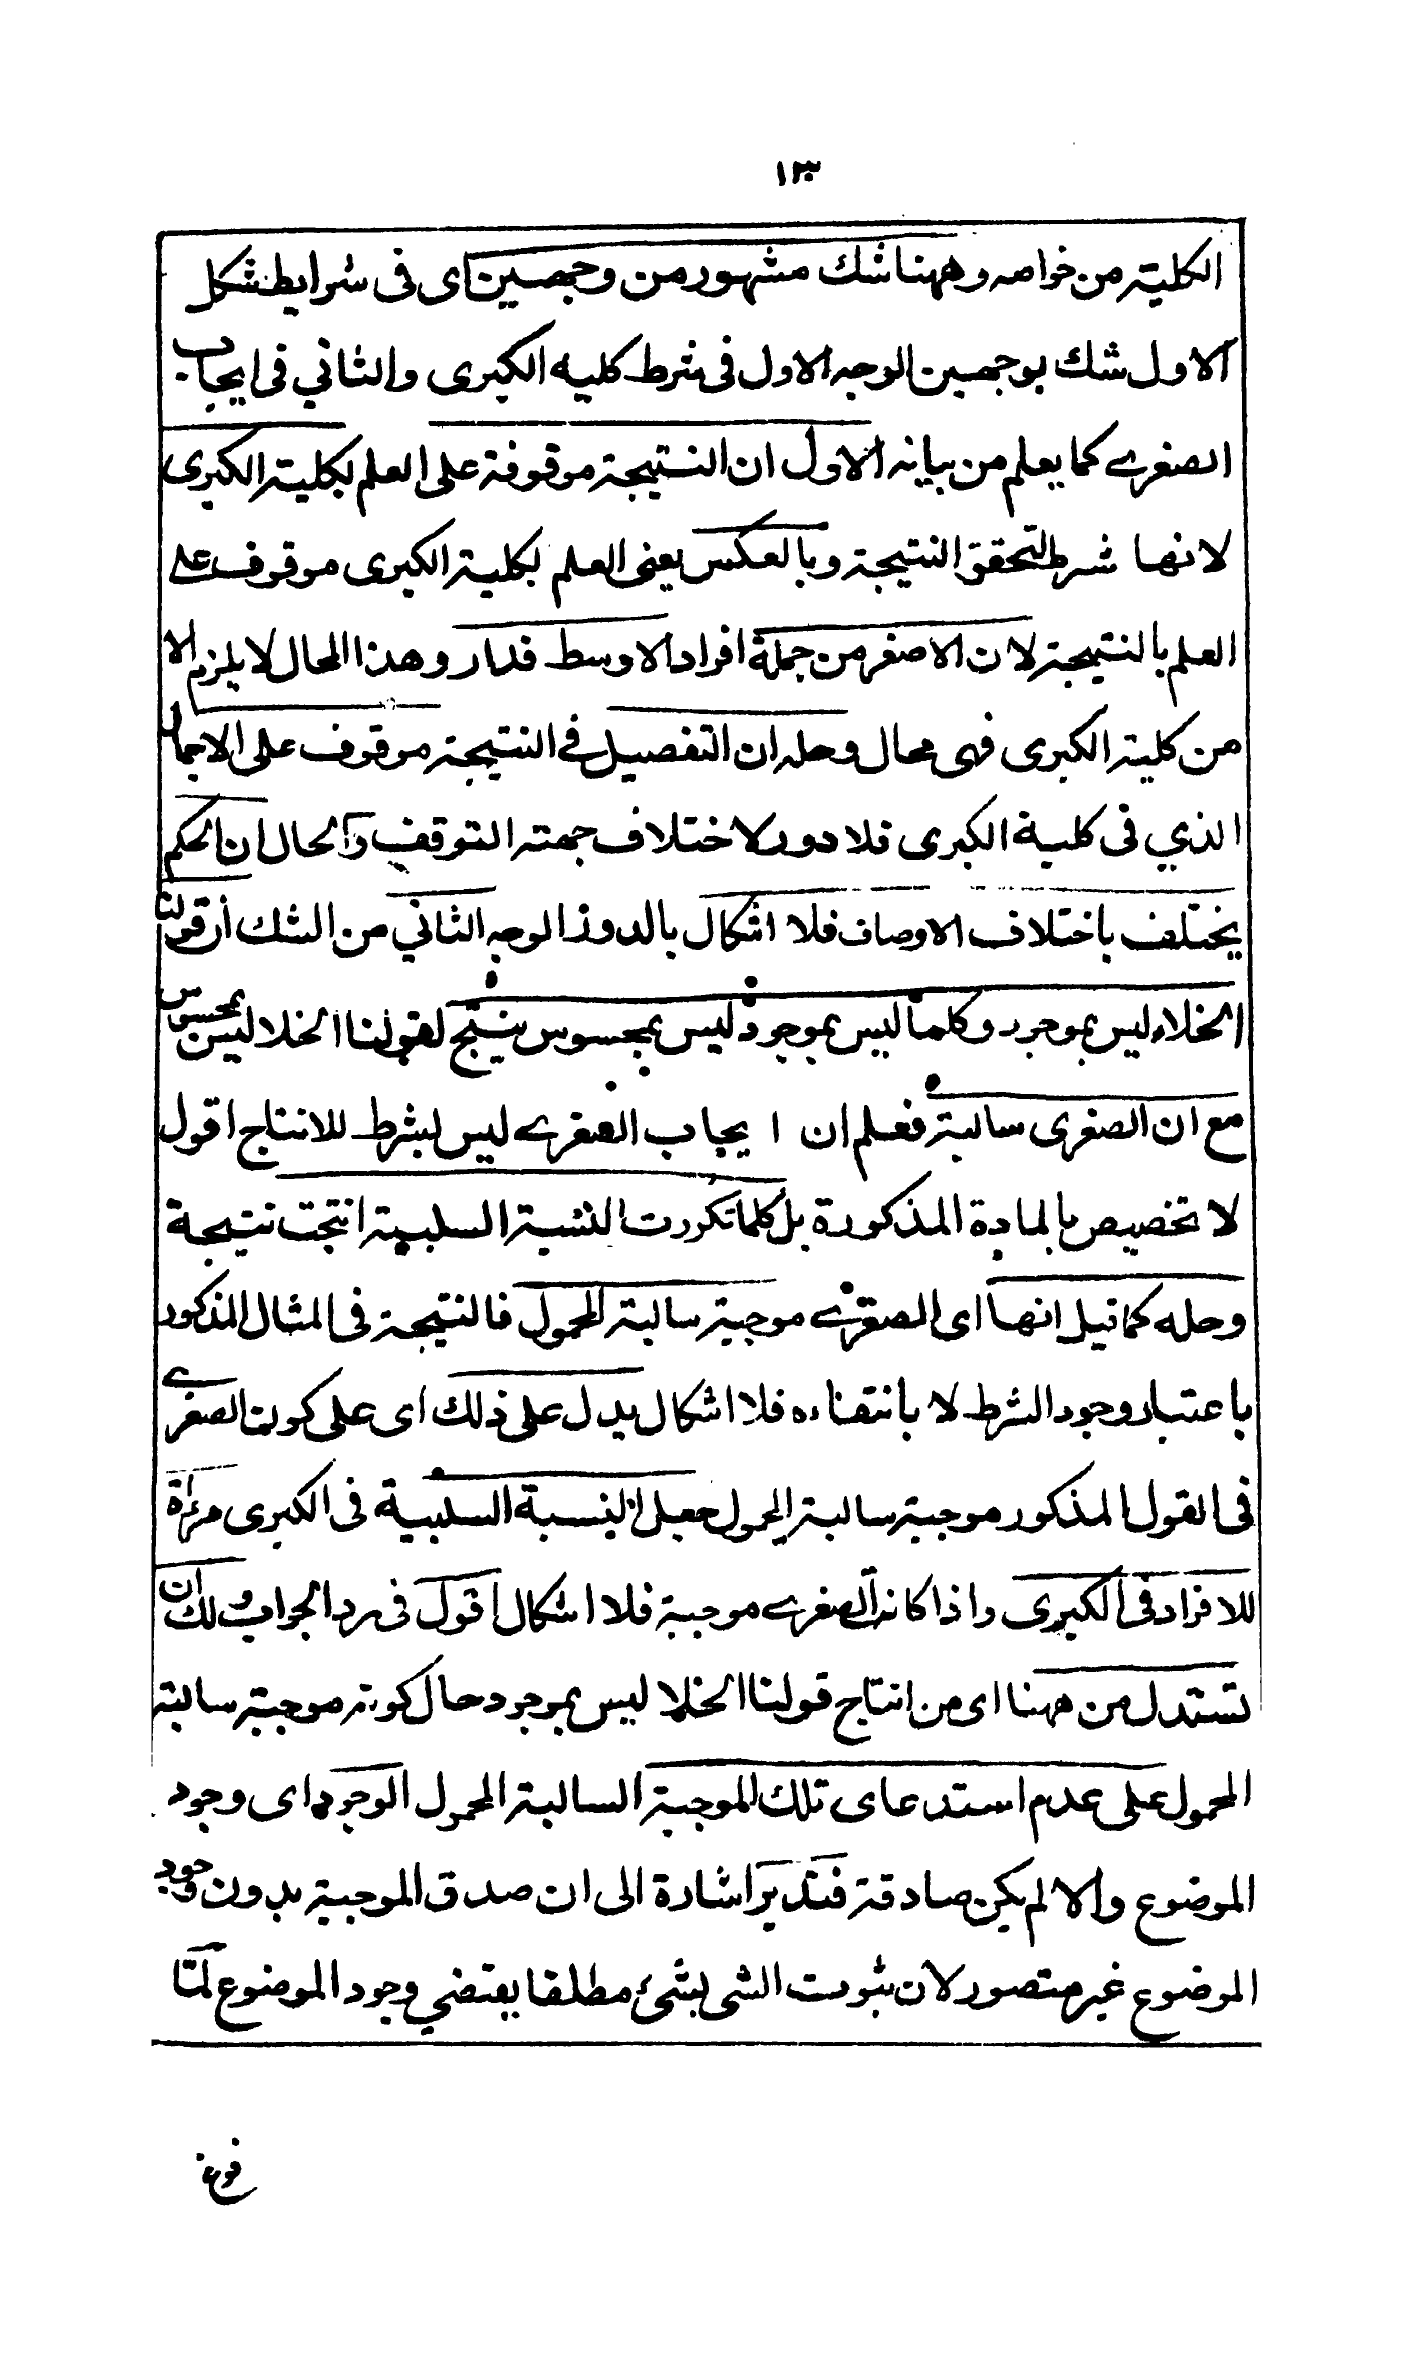 ١٣
الكلية من خواصه وههنا شك مشهور من وجهين اى فى شرايط شكل
الاول شك بوجهين الوجه الاول فى شرط كلية الكبرى والثاني فى ايجاب
الصغرے كما يعلم من بيانه الاول ان النتيجة موقوفة على العلم بكلية الكبرى
لانها شرط لتحقق النتيجة وبالعكس يعنى العلم بكلية الكبرى موقوف علے
العلم بالنتيجة لان الاصغر من جملة افراد الاوسط فدار وهذا المحال لا يلزم الا
من كلية الكبرى فهى محال وحله ان التفصيل فے النتيجة موقوف على الاجمال
الذي فى كلية الكبرى فلا دور لاختلاف جهة التوقف والحال ان الحكم
يختلف باختلاف الاوصاف فلا اشكال بالدور الوجه الثاني من الشك ان قولنا
الخلاء ليس بموجود وكلما ليس بموجود ليس بمحسوس ينتج لقولنا الخلا ليس بمحسوس
مع ان الصغرى سالبة فعلم ان ايجاب الصغرے ليس بشرط للانتاج اقول
لا تخصيص بالمادة المذكورة بل كلما تكررت النسبة السلبية انتجت نتيجة
وحله كما قيل انها اى الصغرے موجبة سالبة المحمول فالنتيجة فى المثال المذكور
باعتبار وجود الشرط لا بانتقاءه فلا اشكال يدل على ذلك اى على كون الصغرے
فى القول المذكور موجبة سالبة المحمول جعل النسبة السلبية فى الكبرى مراة
للافراد فى الكبرى واذا كانت الصغرے موجبة فلا اشكال اقول فى رد الجواب ولك ان
تستدل من ههنا اى من انتاج قولنا الخلا ليس بموجود حال كونه موجبة سالبة
المحمول على عدم استدعاى تلك الموجبة السالبة المحمول الوجود اى وجود
الموضوع والا لم يكن صادقة فتدبر اشارة الى ان صدق الموجبة بدون وجود
الموضوع غير متصور لان ثبوت الشى لشئ مطلقا يقتضي وجود الموضوع لمّا